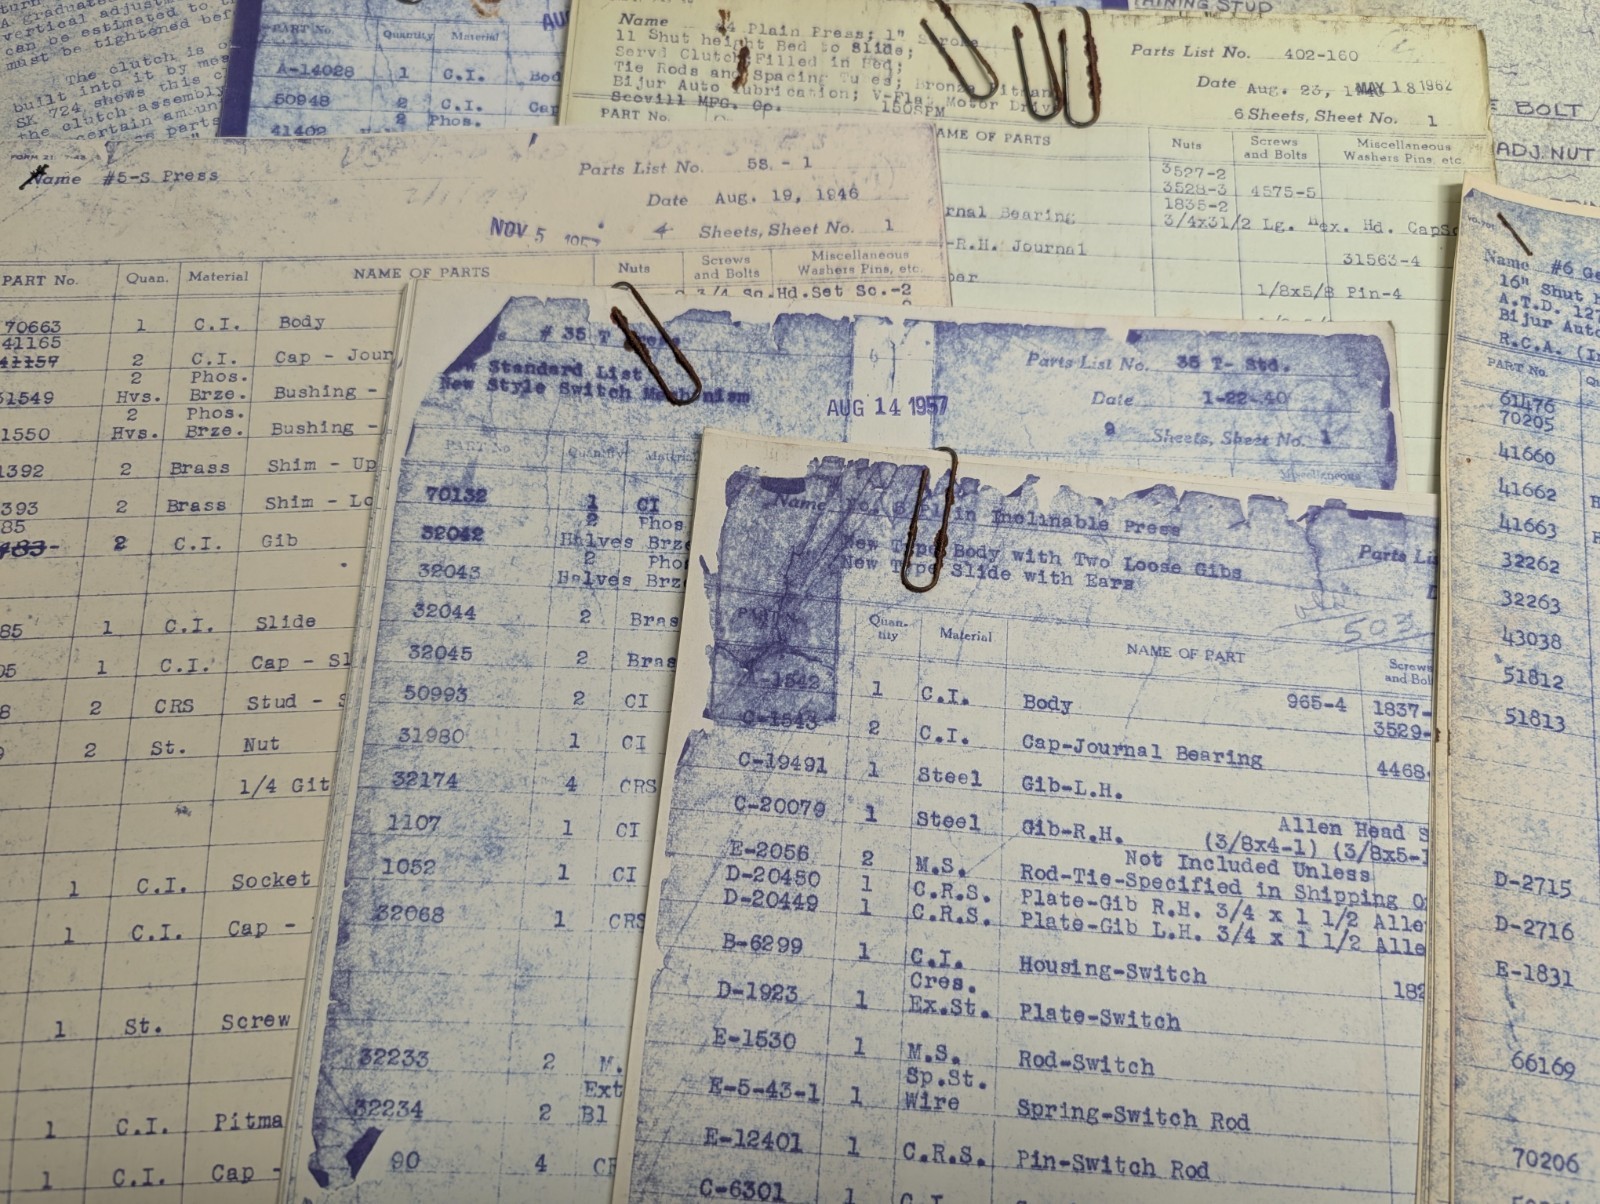 vertical adjustm
can be estimated to
must be tightened bef
The clutch is o
built into it by mea
SK 724 shows this c
the clutch assembly
certain amoun
parts
PART No. Quantity Material
A-14028 1 C.I. Bod
50948 2 C.I. Cap
2 Phos.
41402
Name #4 Plain Press; 1" Stroke
11 Shut height Bed to Slide;
Servd Clutch Filled in Bed;
Tie Rods and Spacing Tubes; Bronze Pitman
Bijur Auto Lubrication; V-Flat Motor Driv
Scovill MFG. Co. 150SPM
Parts List No. 402-160
Date Aug. 23, MAY 18 1962
6 Sheets, Sheet No. 1
PART No. NAME OF PARTS Nuts Screws and Bolts Miscellaneous Washers Pins, etc.
3527-2
3528-3 4575-5
1835-2
rnal Bearing 3/4x31/2 Lg. Hex. Hd. CapSc
-R.H. Journal 31563-4
1/8x5/8 Pin-4
TRAINING STUD
BOLT
ADJ. NUT
Name #5-S Press
Parts List No. 5S. - 1
Date Aug. 19, 1946
NOV 5
4 Sheets, Sheet No. 1
PART No. Quan. Material NAME OF PARTS Nuts Screws and Bolts Miscellaneous Washers Pins, etc.
3/4 Sq.Hd.Set Sc.-2
70663 1 C.I. Body
41165
41157 2 C.I. Cap - Jour
2 Phos.
31549 Hvs. Brze. Bushing -
2 Phos.
1550 Hvs. Brze. Bushing -
1392 2 Brass Shim - Up
393 2 Brass Shim - Lo
85
483- 2 C.I. Gib
85 1 C.I. Slide
05 1 C.I. Cap - Sl
8 2 CRS Stud - S
9 2 St. Nut
1/4 Git
1 C.I. Socket
1 C.I. Cap -
1 St. Screw
1 C.I. Pitma
1 C.I. Cap -
# 35 T Press
New Standard List
New Style Switch Mechanism
AUG 14 1957
Parts List No. 35 T- Std.
Date 1-22-40
9 Sheets, Sheet No. 1
PART No. Quantity Material Miscellaneous
70132 1 CI
2 Phos
32042 Halves Brze
2 Pho
32043 Halves Brz
32044 2 Bras
32045 2 Bras
50993 2 CI
31980 1 CI
32174 4 CRS
1107 1 CI
1052 1 CI
32068 1 CRS
32233 2 M.
Ext
32234 2 Bl
90 4 CR
Name No. 5 Plain Inclinable Press
New Type Body with Two Loose Gibs
New Type Slide with Ears
Parts Li
503
PART No. Quantity Material NAME OF PART Screws and Bol
A-1542 1 C.I. Body 965-4 1837-
3529-
C-1543 2 C.I. Cap-Journal Bearing 4468-
C-19491 1 Steel Gib-L.H.
C-20079 1 Steel Gib-R.H. Allen Head S
(3/8x4-1) (3/8x5-1
Not Included Unless
E-2056 2 M.S. Rod-Tie-Specified in Shipping O
D-20450 1 C.R.S. Plate-Gib R.H. 3/4 x 1 1/2 Alle
D-20449 1 C.R.S. Plate-Gib L.H. 3/4 x 1 1/2 Alle
B-6299 1 C.I. Housing-Switch 182
Cres.
D-1923 1 Ex.St. Plate-Switch
E-1530 1 M.S. Rod-Switch
Sp.St.
E-5-43-1 1 Wire Spring-Switch Rod
E-12401 1 C.R.S. Pin-Switch Rod
C-6301 1 C.I.
Name #6 Ge
16" Shut h
A.T.D. 127
Bijur Auto
R.C.A. (In
PART No.
61476
70205
41660
41662
41663
32262
32263
43038
51812
51813
D-2715
D-2716
E-1831
66169
70206